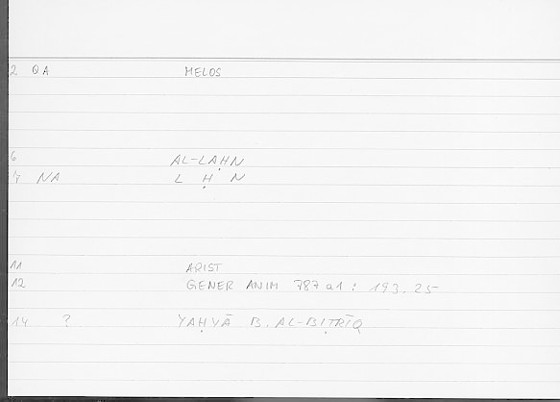 2 QA MELOS
6 AL-LAḤN
7 NA L Ḥ N
11 ARIST
12 GENER ANIM 787 a1 : 193.25
14 ? YAḤYĀ B. AL-BIṬRĪQ